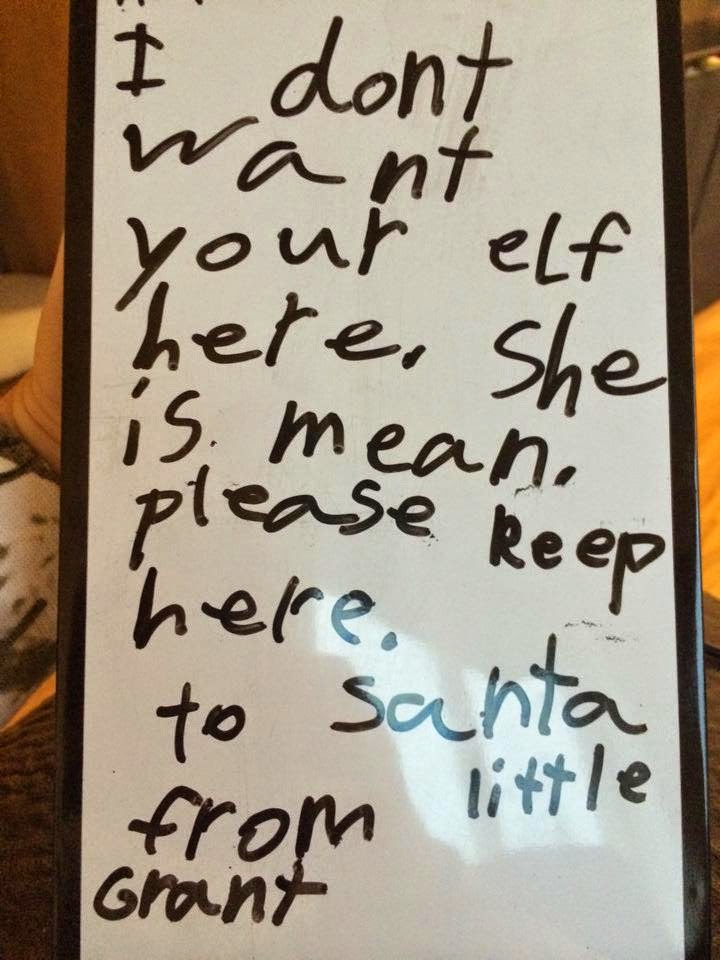 I dont
want
your elf
here. She
is. mean.
please keep
here.
to santa
little
from
Grant